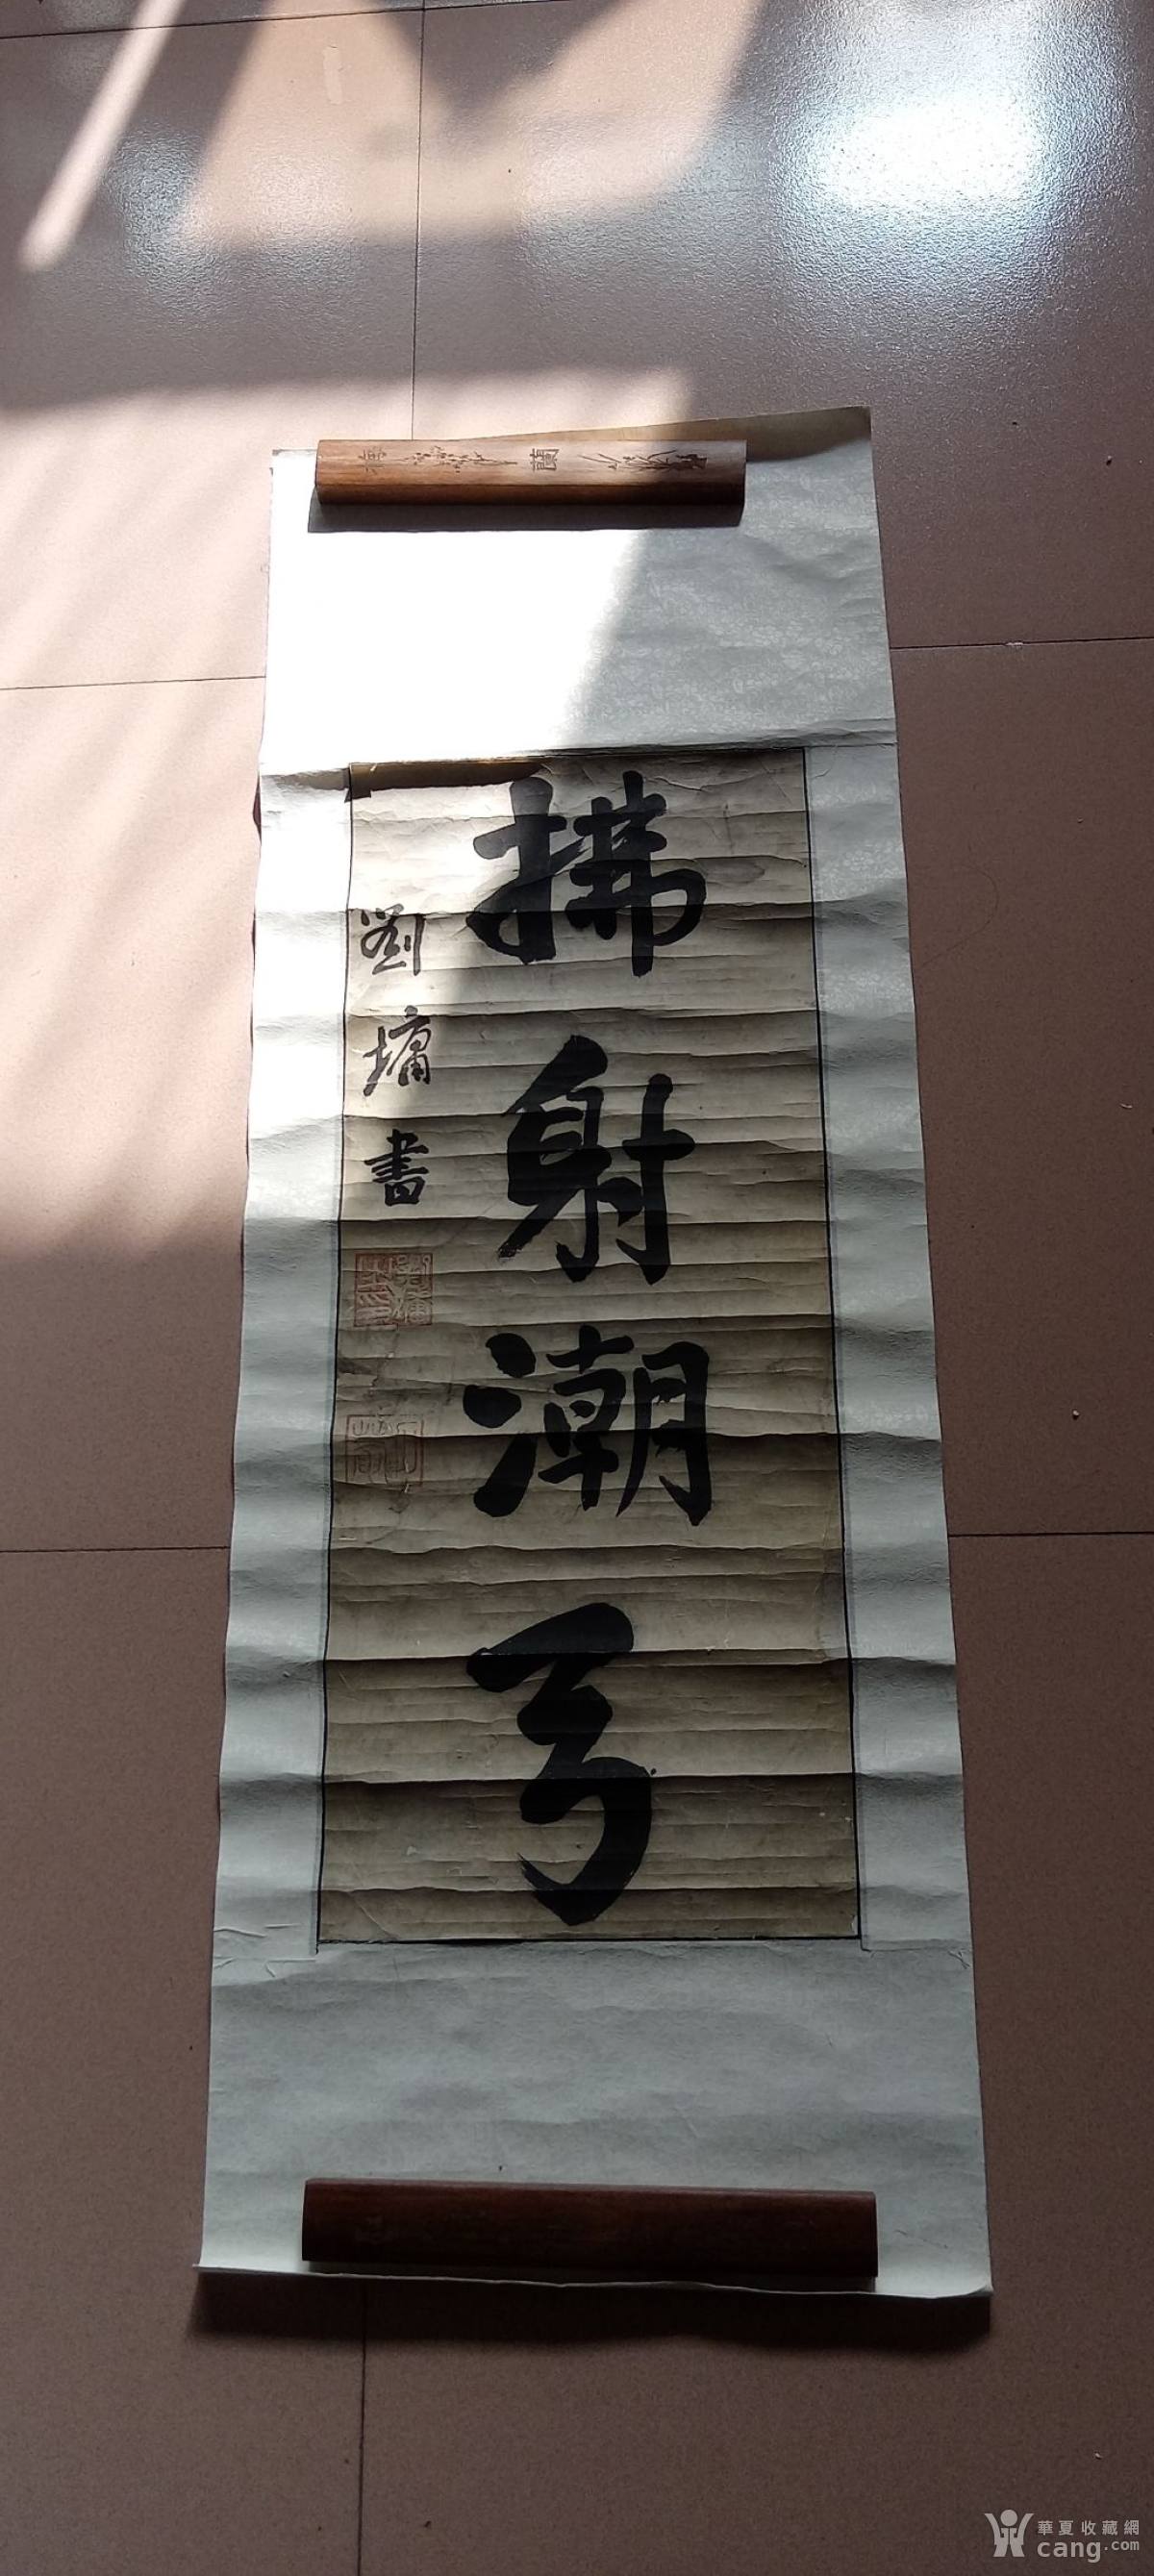 拂射潮弓
劉墉書
蘭
華夏收藏網
cang.com